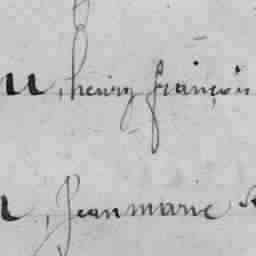 u, henry françois
, Jean marie